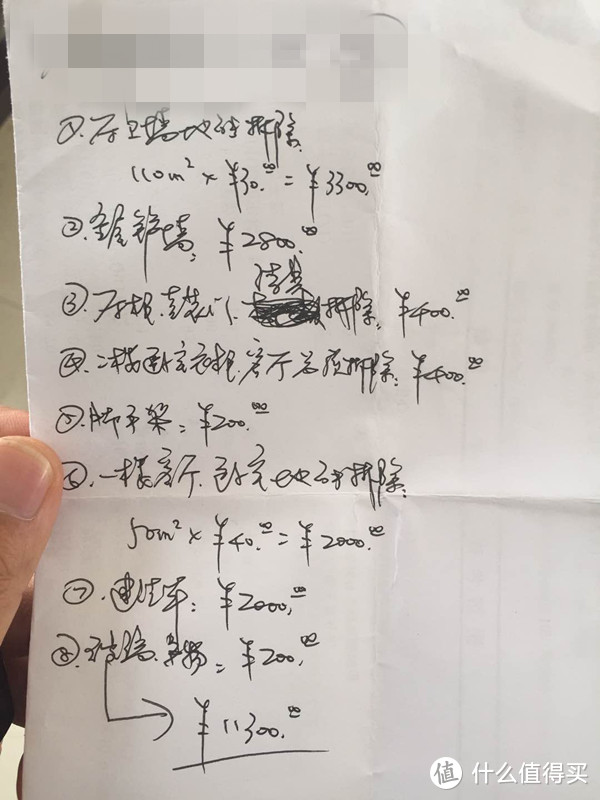 ①.厨卫墙地砖拆除.
110m² × ¥30.00 = ¥3300.00
②.全屋铲墙: ¥2800.00
洁具
③.橱柜.套装门.拆除: ¥400.00
④.二楼卧室衣柜.客厅吊顶拆除: ¥400.00
⑤.脚手架: ¥200.00
⑥.一楼客厅.卧室地砖拆除:
50m² × ¥40.00 = ¥2000.00
⑦.垃圾车: ¥2000.00
⑧.玻璃.: ¥200.00
¥11300.00
值 什么值得买